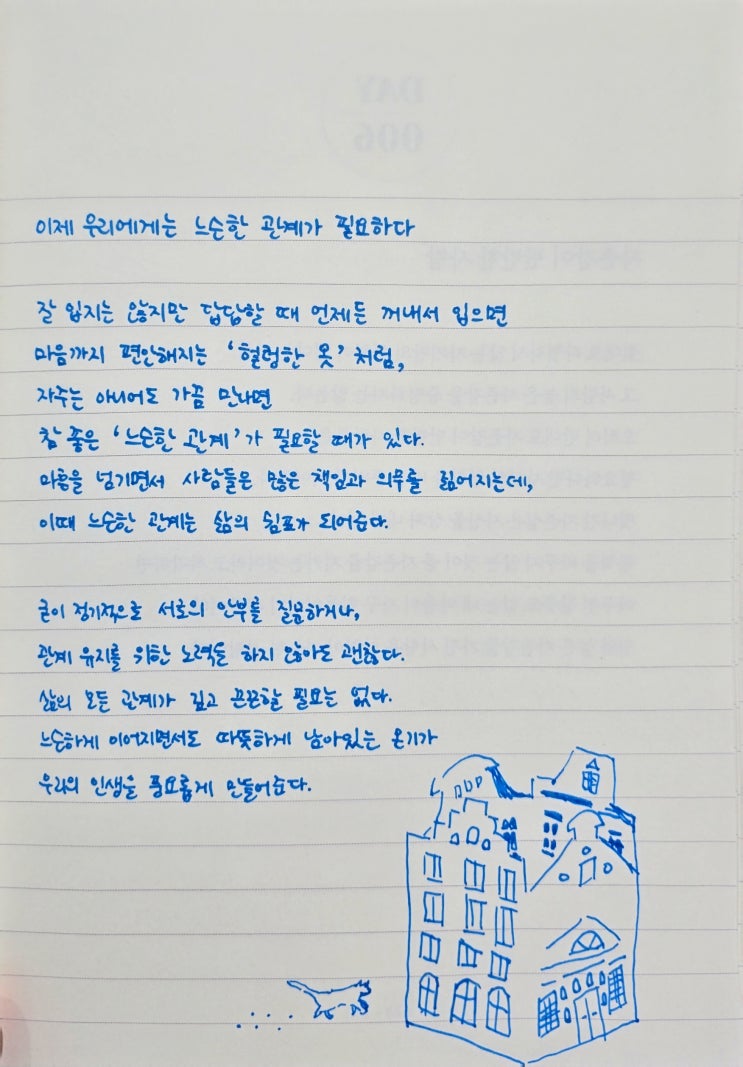 이제 우리에게는 느슨한 관계가 필요하다
잘 입지는 않지만 답답할 때 언제든 꺼내서 입으면
마음까지 편안해지는 '헐렁한 옷' 처럼,
자주는 아니어도 가끔 만나면
참 좋은 '느슨한 관계'가 필요할 때가 있다.
마흔을 넘기면서 사람들은 많은 책임과 의무를 짊어지는데,
이때 느슨한 관계는 삶의 쉼표가 되어준다.
굳이 정기적으로 서로의 안부를 질문하거나,
관계 유지를 위한 노력을 하지 않아도 괜찮다.
삶의 모든 관계가 깊고 끈끈할 필요는 없다.
느슨하게 이어지면서도 따뜻하게 남아있는 온기가
우리의 인생을 풍요롭게 만들어준다.
DAY
006